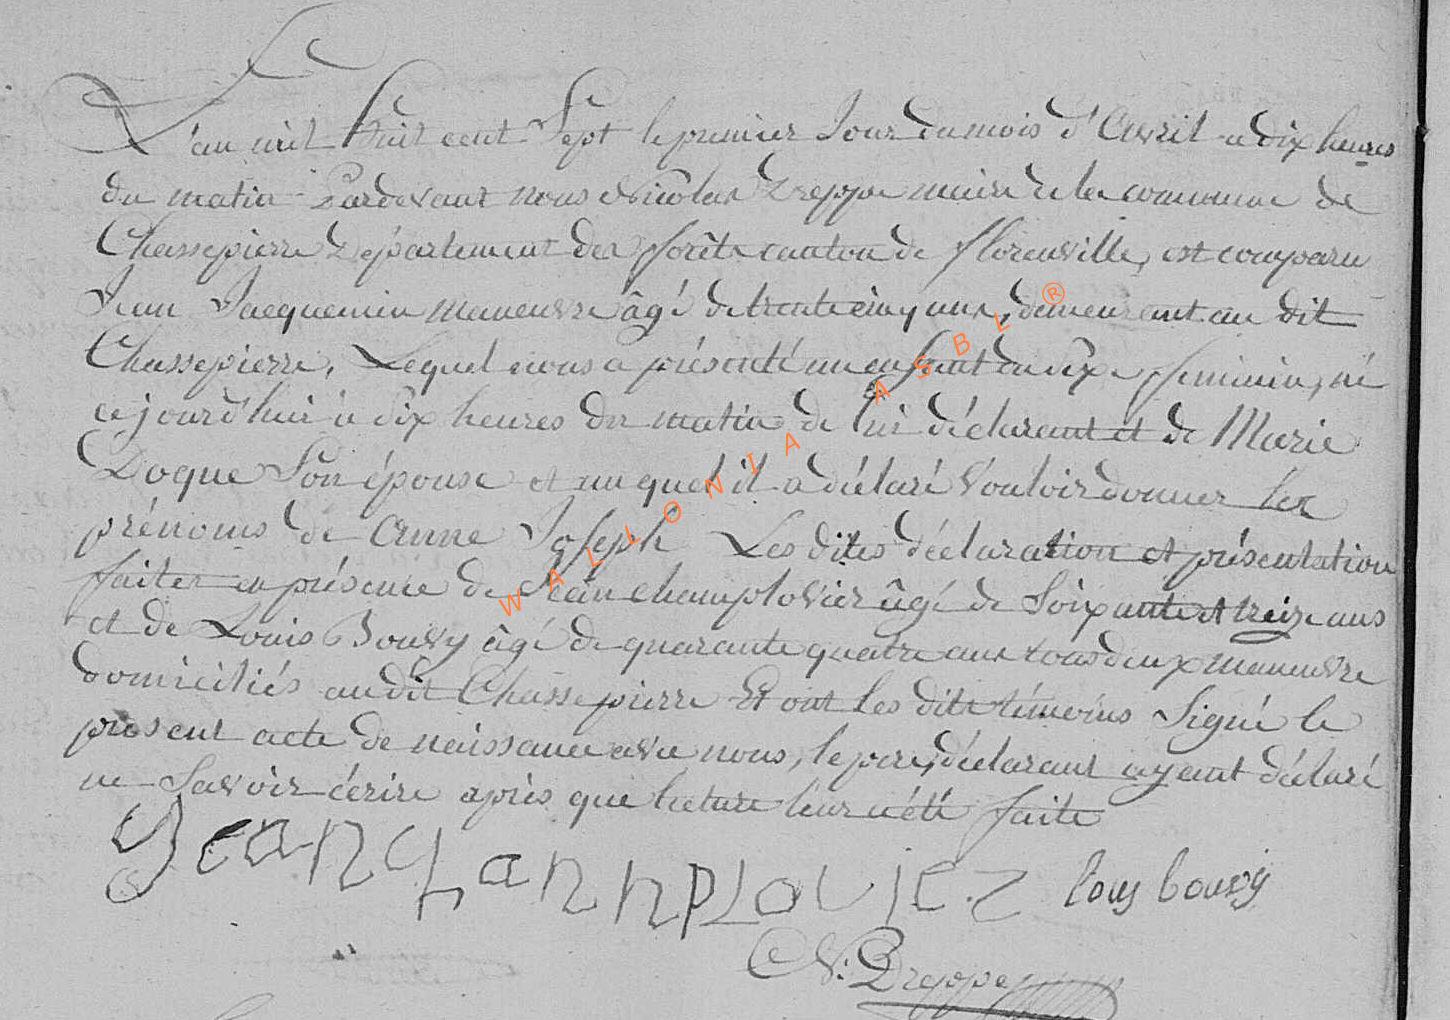 L'an mil huit cent Sept le premier Jour du mois d'Avril a dix heures
du matin Pardevant nous Nicolas Dreppe maire de la commune de
Chassepierre Département des forêts canton de florenville, est comparu
Jean Jacquemin maneuvre âgé de trente cinq ans, demeurant au dit
Chassepierre, Lequel nous a présenté un enfant du sexe féminin, né
cejourd'hui à dix heures du matin de lui déclarant et de Marie
Doque Son épouse et auquel il a déclaré Vouloir donner les
prénoms de Anne Joseph Les dites déclaration et présentation
faites en présence de Jean champlovier âgé de Soixante et treize ans
et de Louis Bouvy âgé de quarante quatre ans tous deux maneuvre
domiciliés audit Chassepierre Et ont les dits témoins Signé le
présent acte de naissance avec nous, le père, déclarant ayant déclaré
ne Savoir écrire après que lecture leur a été faite
Jean Louy bouvy
N: Dreppe
WALLONIA ASBL ®